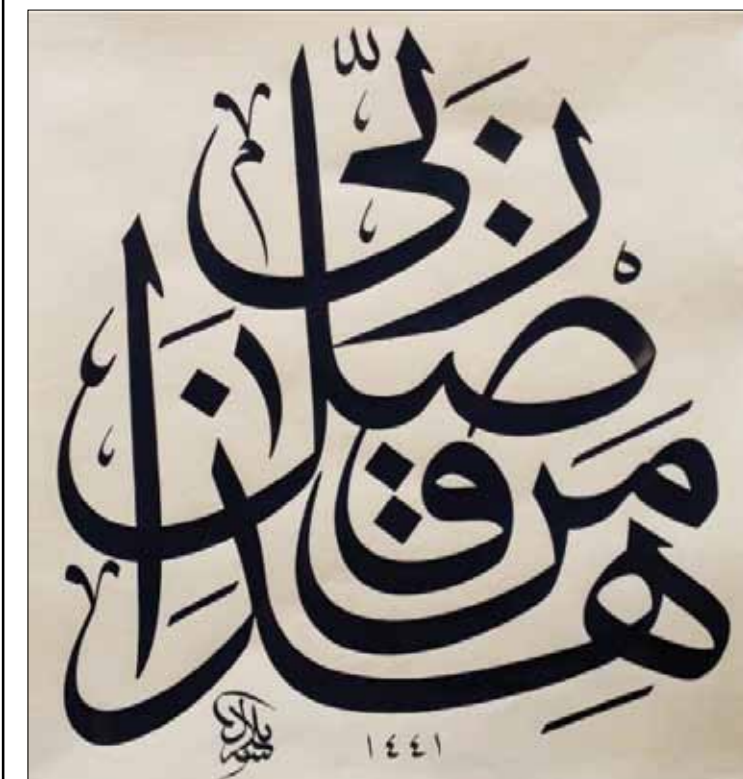 هذا من فضل ربي
١٤٤١